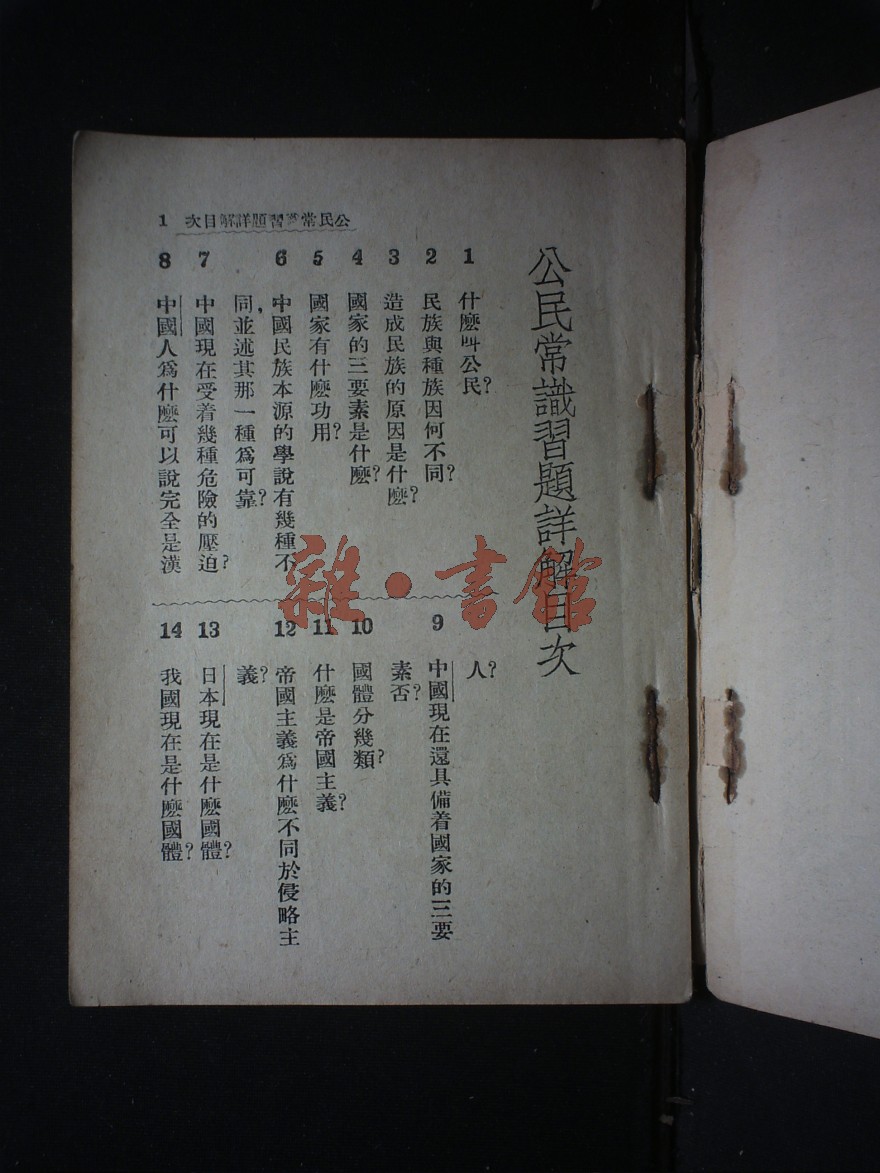 公民常識習題詳解目次
公民常識習題詳解目次 1
1 什麽叫公民？
2 民族與種族因何不同？
3 造成民族的原因是什麽？
4 國家的三要素是什麽？
5 國家有什麽功用？
6 中國民族本源的學說有幾種不
同，並述其那一種爲可靠？
7 中國現在受着幾種危險的壓迫？
8 中國人爲什麽可以說完全是漢
人？
9 中國現在還具備着國家的三要
素否？
10 國體分幾類？
11 什麽是帝國主義？
12 帝國主義爲什麽不同於侵略主
義？
13 日本現在是什麽國體？
14 我國現在是什麽國體？
雜·書館